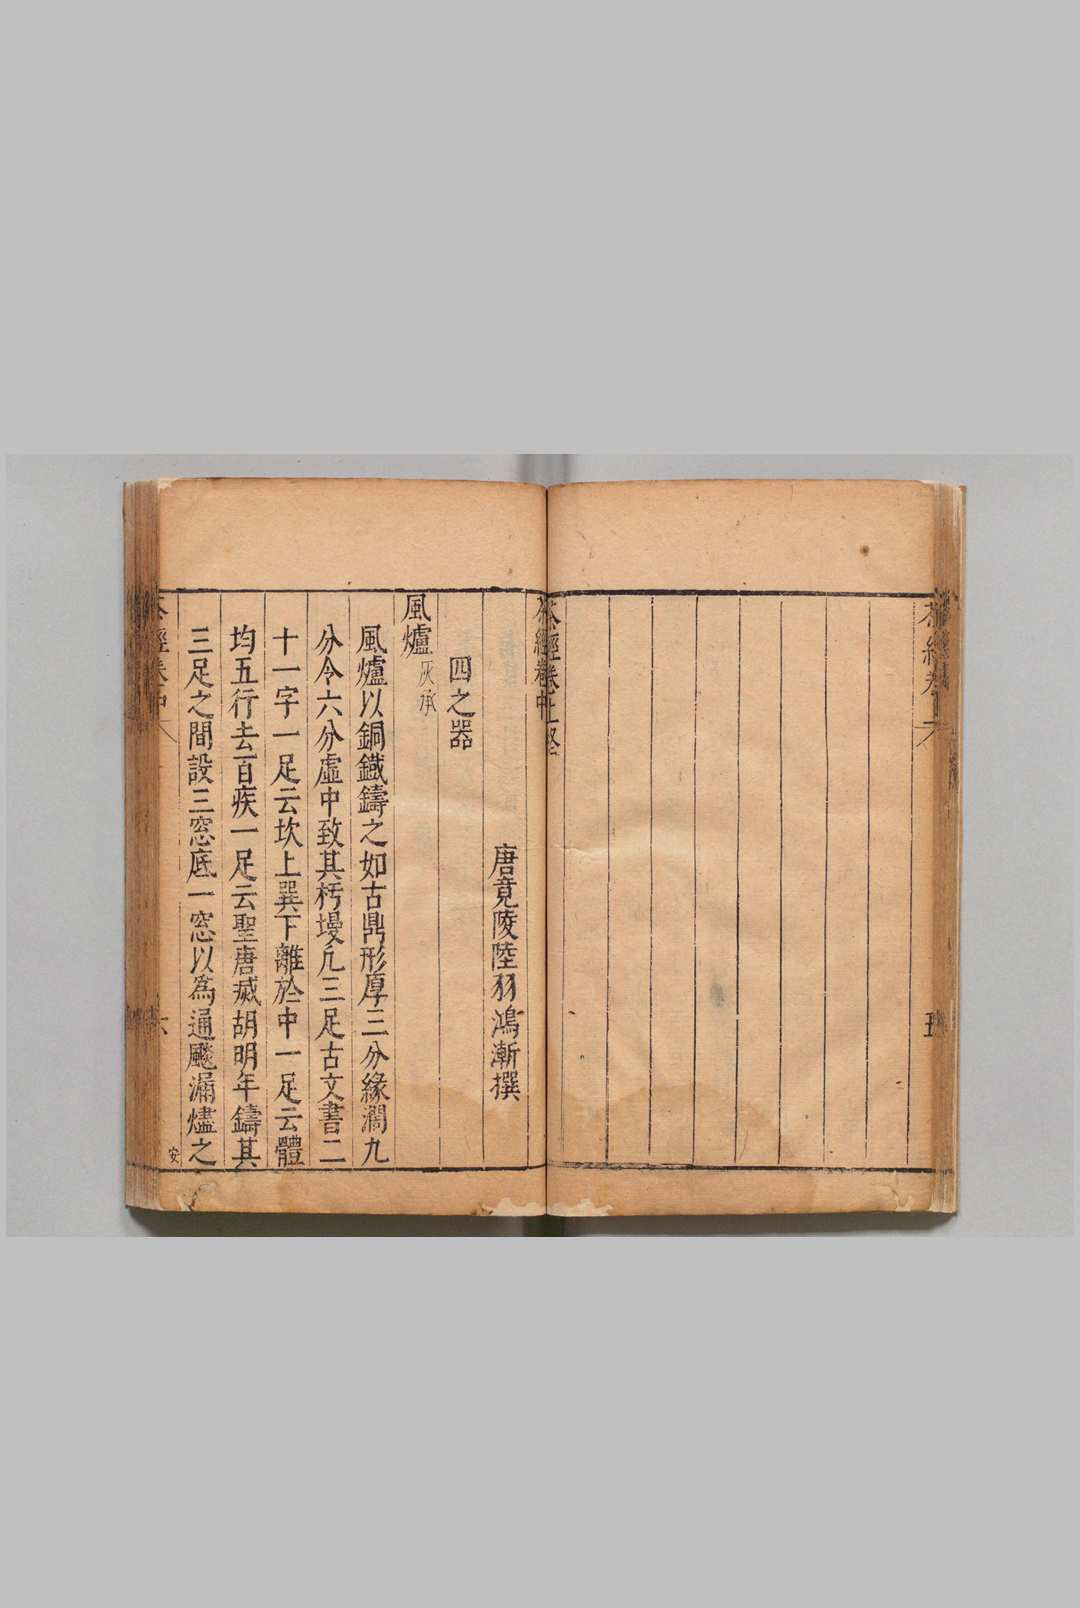 茶經卷上
五
茶經卷上終
茶經卷中
唐竟陵陸羽鴻漸撰
四之器
風爐灰承
風爐以銅鐵鑄之如古鼎形厚三分緣濶九
分令六分虛中致其杇墁凡三足古文書二
十一字一足云坎上巽下離於中一足云體
均五行去百疾一足云聖唐滅胡明年鑄其
三足之間設三窓底一窓以為通飈漏燼之
茶經卷中
六
安